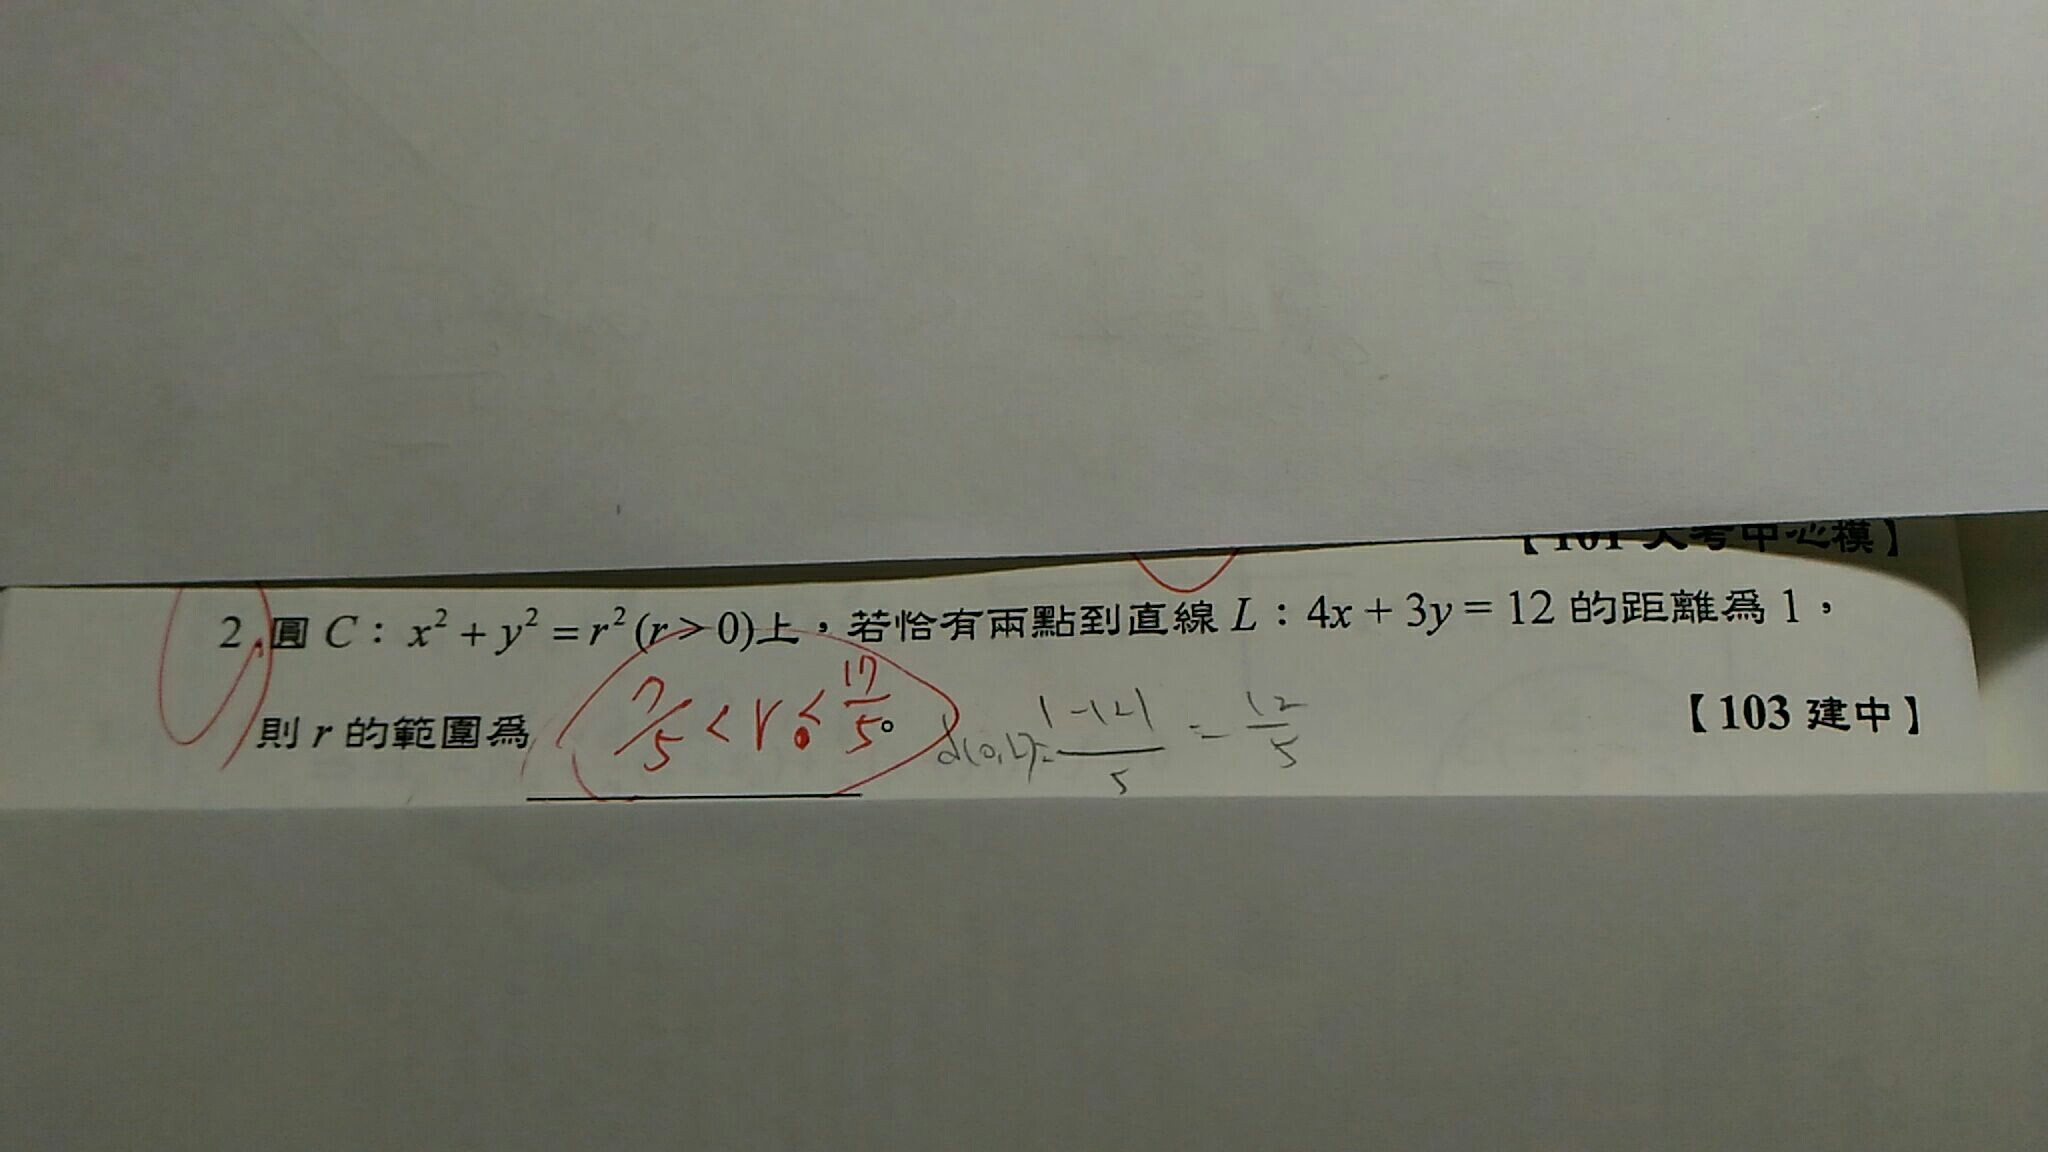 【101大考中心模】
2. 圓 C：x² + y² = r² (r > 0)上，若恰有兩點到直線 L：4x + 3y = 12 的距離為 1，
則 r 的範圍為 7/5 < r < 17/5。 d(0,L)= |-12|/5 = 12/5 【103 建中】